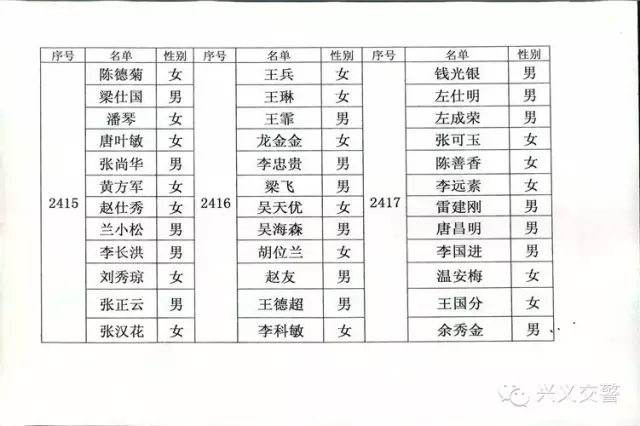 序号 名单 性别 序号 名单 性别 序号 名单 性别
陈德菊 女 王兵 女 钱光银 男
梁仕国 男 王琳 女 左仕明 男
潘琴 女 王霏 男 左成荣 男
唐叶敏 女 龙金金 女 张可玉 女
张尚华 男 李忠贵 男 陈善香 女
黄方军 女 梁飞 男 李远素 女
2415 赵仕秀 女 2416 吴天优 女 2417 雷建刚 男
兰小松 男 吴海森 男 唐昌明 男
李长洪 男 胡位兰 女 李国进 男
刘秀琼 女 赵友 男 温安梅 女
张正云 男 王德超 男 王国分 女
张汉花 女 李科敏 女 余秀金 男
兴义交警